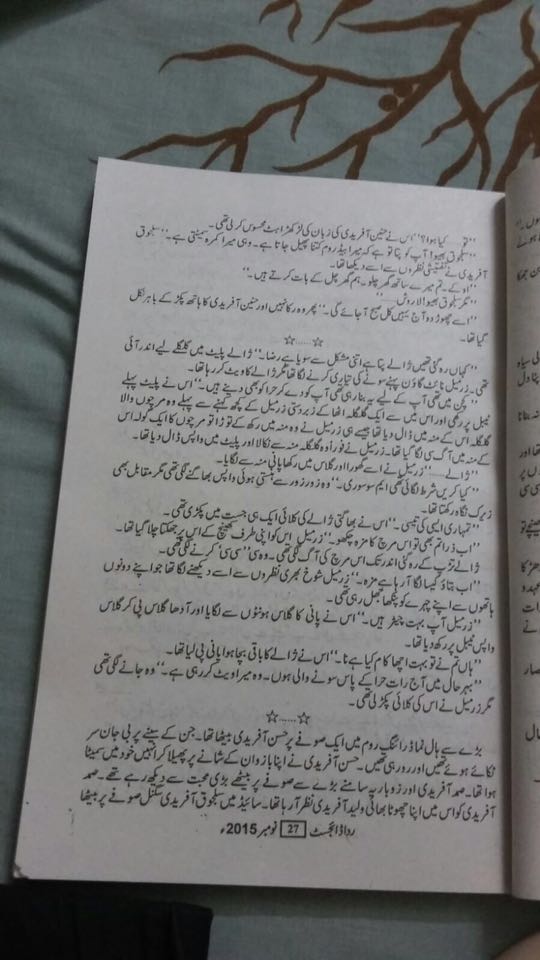 ”تو.....کیا ہوا؟“ اس نے حنین آفریدی کی زبان کی لڑکھڑاہٹ محسوس کر لی تھی۔
”سلجوق بھیو! آپ کو پتا تو ہے کہ میرا بیڈ روم کتنا پھیل جاتا ہے۔ وہی میرا کمرہ سمیٹتی ہے۔“ سلجوق
آفریدی نے تفتیشی نظروں سے اسے دیکھا تھا۔
”او کے۔ تم میرے ساتھ گھر چلو۔ ہم گھر چل کے بات کرتے ہیں۔“
”مگر سلجوق بھیو! لاروش۔“
”اسے چھوڑ دو وہ آج یہیں کل صبح آ جائے گی۔“ پھر وہ رکا نہیں اور حنین آفریدی کا ہاتھ پکڑ کے باہر نکل
گیا تھا۔
☆......☆
”کہاں رہ گئی تھیں ژالے پتا ہے اتنی مشکل سے سویا ہے رضا۔“ ژالے پلیٹ میں گلگلے لیے اندر آئی
تھی۔ زرمیل نائٹ گاؤن پہنے سونے کی تیاری کرنے لگا تھا مگر ژالے کا ویٹ کر رہا تھا۔
”کچن میں تھی آپ کے لیے یہ بنا رہی تھی آپ کو دے کر حرا کو بھی دینے ہیں۔“ اس نے پلیٹ پہلے
ٹیبل پر رکھی اور اس میں سے ایک گلگلہ اٹھا کے زبردستی زرمیل کے کچھ کہنے سے پہلے وہ مرچوں والا
گلگلہ اس کے منہ میں ڈال دیا تھا جیسے ہی زرمیل نے وہ منہ میں رکھ کے توڑا تو مرچوں کا ایک گولہ اس
کے منہ میں آگ سی لگا گیا تھا۔ زرمیل نے فوراً وہ گلگلہ منہ سے نکالا اور پلیٹ میں واپس ڈال دیا تھا۔
”ژالے.....“ زرمیل نے اسے گھورا اور گلاس میں رکھا پانی منہ سے لگایا۔
”کیا کریں شرط لگائی تھی ایم سو سوری۔“ وہ زور زور سے ہنستی ہوئی واپس بھاگنے لگی تھی مگر مقابل بھی
زیرک نگاہ رکھتا تھا۔
”تمہاری ایسی کی تیسی۔“ اس نے بھاگتی ژالے کی کلائی ایک ہی جست میں پکڑی تھی۔
”اب ذرا تم بھی تو اس مرچ کا مزہ چکھو۔“ زرمیل اس کو اپنی طرف کھینچ کے اس پر جھکتا چلا گیا تھا۔
ژالے تڑپ کے رہ گئی اندر تک اس مرچ کی آگ لگی تھی۔ وہ سی”سی سی“ کرنے لگی تھی۔
”اب بتاؤ کیسا لگا آ رہا ہے مزہ۔“ زرمیل شوخ بھری نظروں سے اسے دیکھنے لگا تھا جو اپنے دونوں
ہاتھوں سے اپنے چہرے کو پنکھا جھل رہی تھی۔
”زرمیل آپ بہت چیٹر ہیں۔“ اس نے پانی کا گلاس ہونٹوں سے لگایا اور آدھا گلاس پی کر گلاس
واپس ٹیبل پر رکھ دیا تھا۔
”ہاں تم نے تو بہت اچھا کام کیا ہے نا۔“ اس نے ژالے کا باقی بچا ہوا پانی پی لیا تھا۔
”بہرحال میں آج رات حرا کے پاس سونے والی ہوں۔ وہ میرا ویٹ کر رہی ہے۔“ وہ جانے لگی تھی
مگر زرمیل نے اس کی کلائی پکڑ لی تھی۔
☆......☆
بڑے سے ہال نما ڈرائنگ روم میں ایک صوفے پر حسن آفریدی بیٹھا تھا۔ جن کے سینے پر بی جان سر
ٹکائے ہوئے تھیں اور رو رہی تھیں۔ حسن آفریدی نے اپنا بازو ان کے شانے پر پھیلا کر انہیں خود میں سمیٹا
ہوا تھا۔ صمد آفریدی اور زوباریہ سامنے بڑے سے صوفے پر بیٹھے بڑی محبت سے دیکھ رہے تھے۔ صمد
آفریدی کو اس میں اپنا چھوٹا بھائی ولید آفریدی نظر آ رہا تھا۔ سائیڈ میں سلجوق آفریدی سنگل صوفے پر بیٹھا
ردا ڈائجسٹ 27 نومبر 2015ء